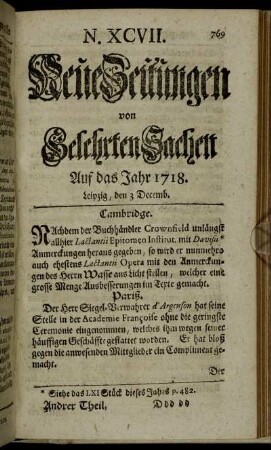 N. XCVII.
769
Neue Zeitungen
von
Gelehrten Sachen
Auf das Jahr 1718.
Leipzig, den 3 Decemb.
Cambridge.
NAchdem der Buchhändler Crownfield unlängst
allhier Lactantii Epitomen Institut. mit Davisii *
Anmerckungen heraus gegeben, so wird er nunmehro
auch ehestens Lactantii Opera mit den Anmerckun-
gen des Herrn Wasse ans Licht stellen, welcher eine
grosse Menge Ausbesserungen im Texte gemacht.
Pariß.
Der Herr Siegel-Verwahrer d'Argenson hat seine
Stelle in der Academie Françoise ohne die geringste
Ceremonie eingenommen, welches ihm wegen seiner
häuffigen Geschäffte gestattet worden. Er hat bloß
gegen die anwesenden Mittglieder ein Compliment ge-
macht.
Der
* Siehe das LXI Stück dieses Jahrs p. 482.
Andrer Theil,
D d d d d